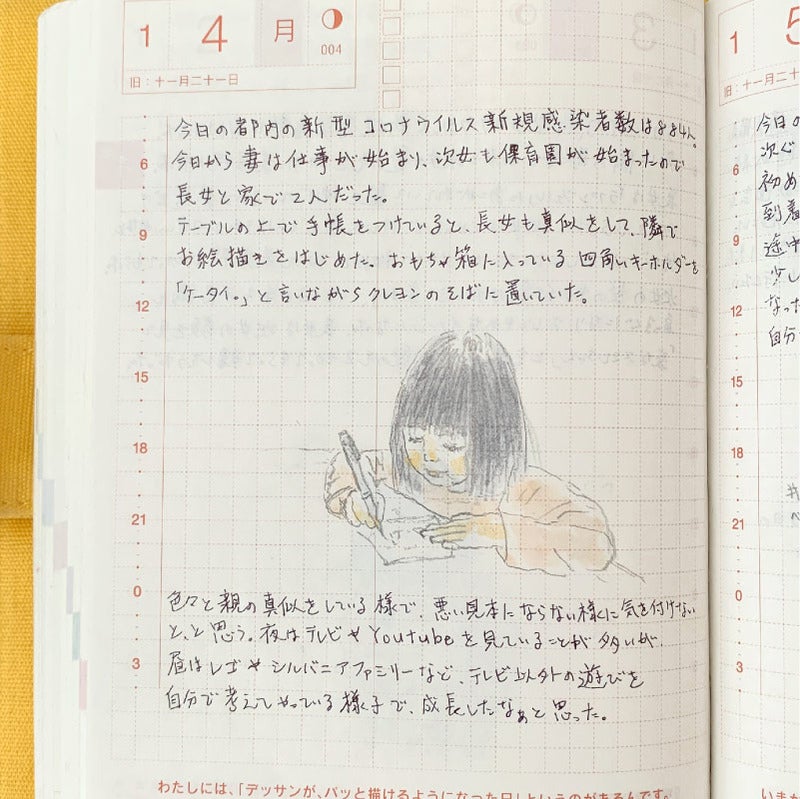 1 4 月
004
旧：十一月二十一日
今日の都内の新型コロナウイルス新規感染者数は884人。
今日から妻は仕事が始まり、次女も保育園が始まったので
長女と家で2人だった。
テーブルの上で手帳をつけていると、長女も真似をして、隣で
お絵描きをはじめた。おもちゃ箱に入っている四角いキーホルダーを
「ケータイ。」と言いながらクレヨンのそばに置いていた。
6
9
12
15
18
21
0
3
色々と親の真似をしている様で、悪い見本にならない様に気を付けない
と、と思う。夜はテレビやYoutubeを見ていることが多いが、
昼はレゴやシルバニアファミリーなど、テレビ以外の遊びを
自分で考えてやっている様子で、成長したなぁと思った。
わたしには、「デッサンが、パッと描けるようになった日」というのがあるんです。
1 5
旧：十一月二十
今日の
次ぐ
初め
到着
途中
少し
なった
自分
6
9
12
15
18
21
0
3
いまか